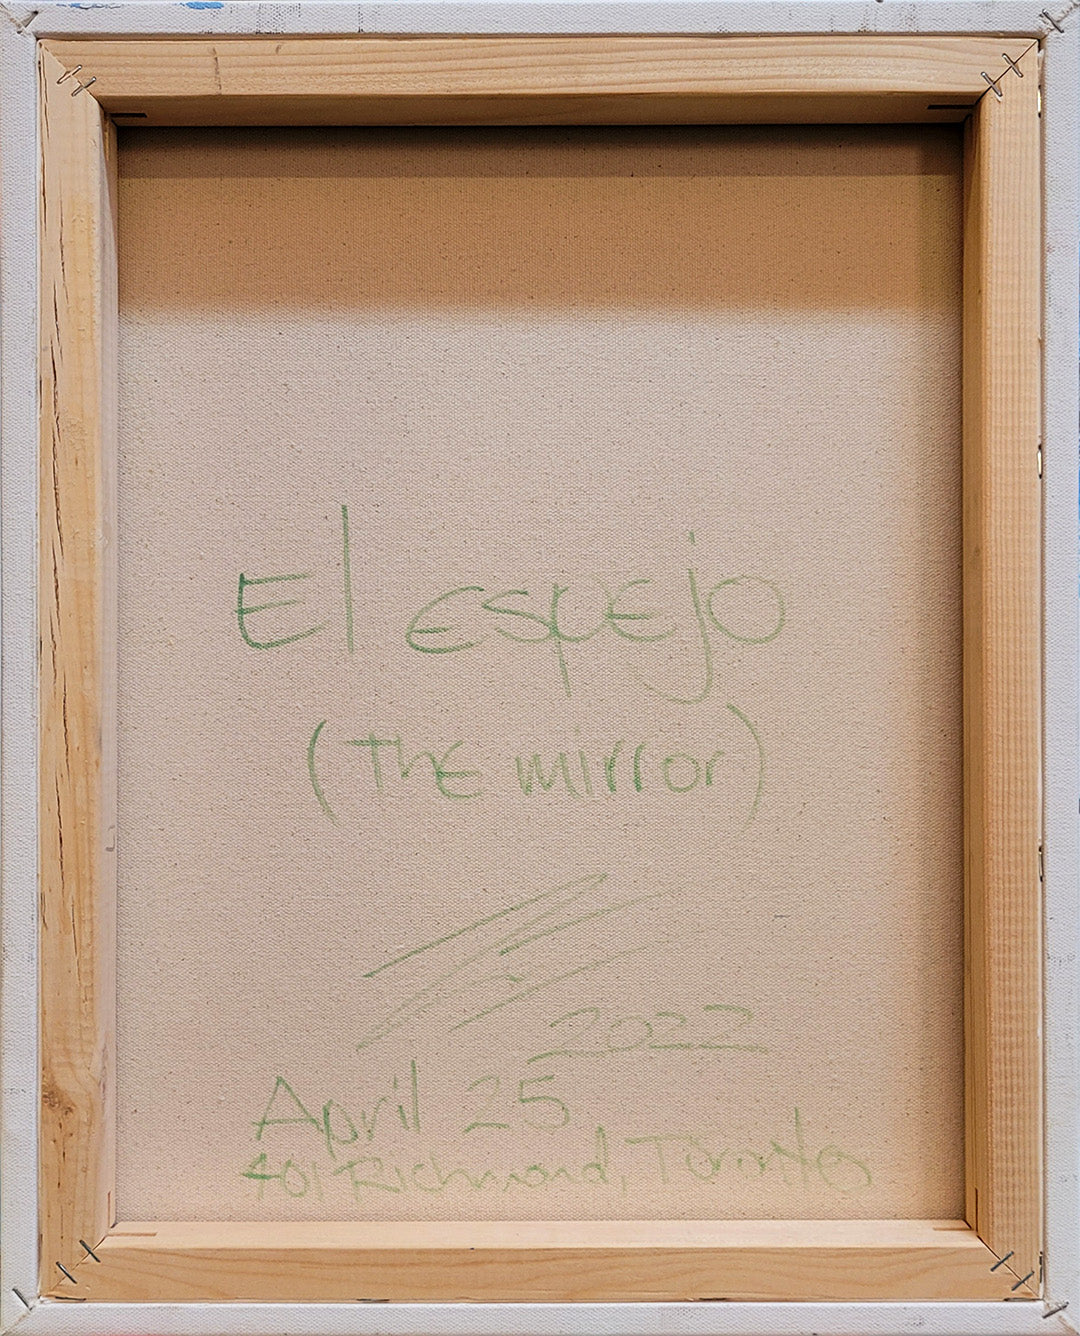 El espejo
(The mirror)
2022
April 25
401 Richmond, Toronto